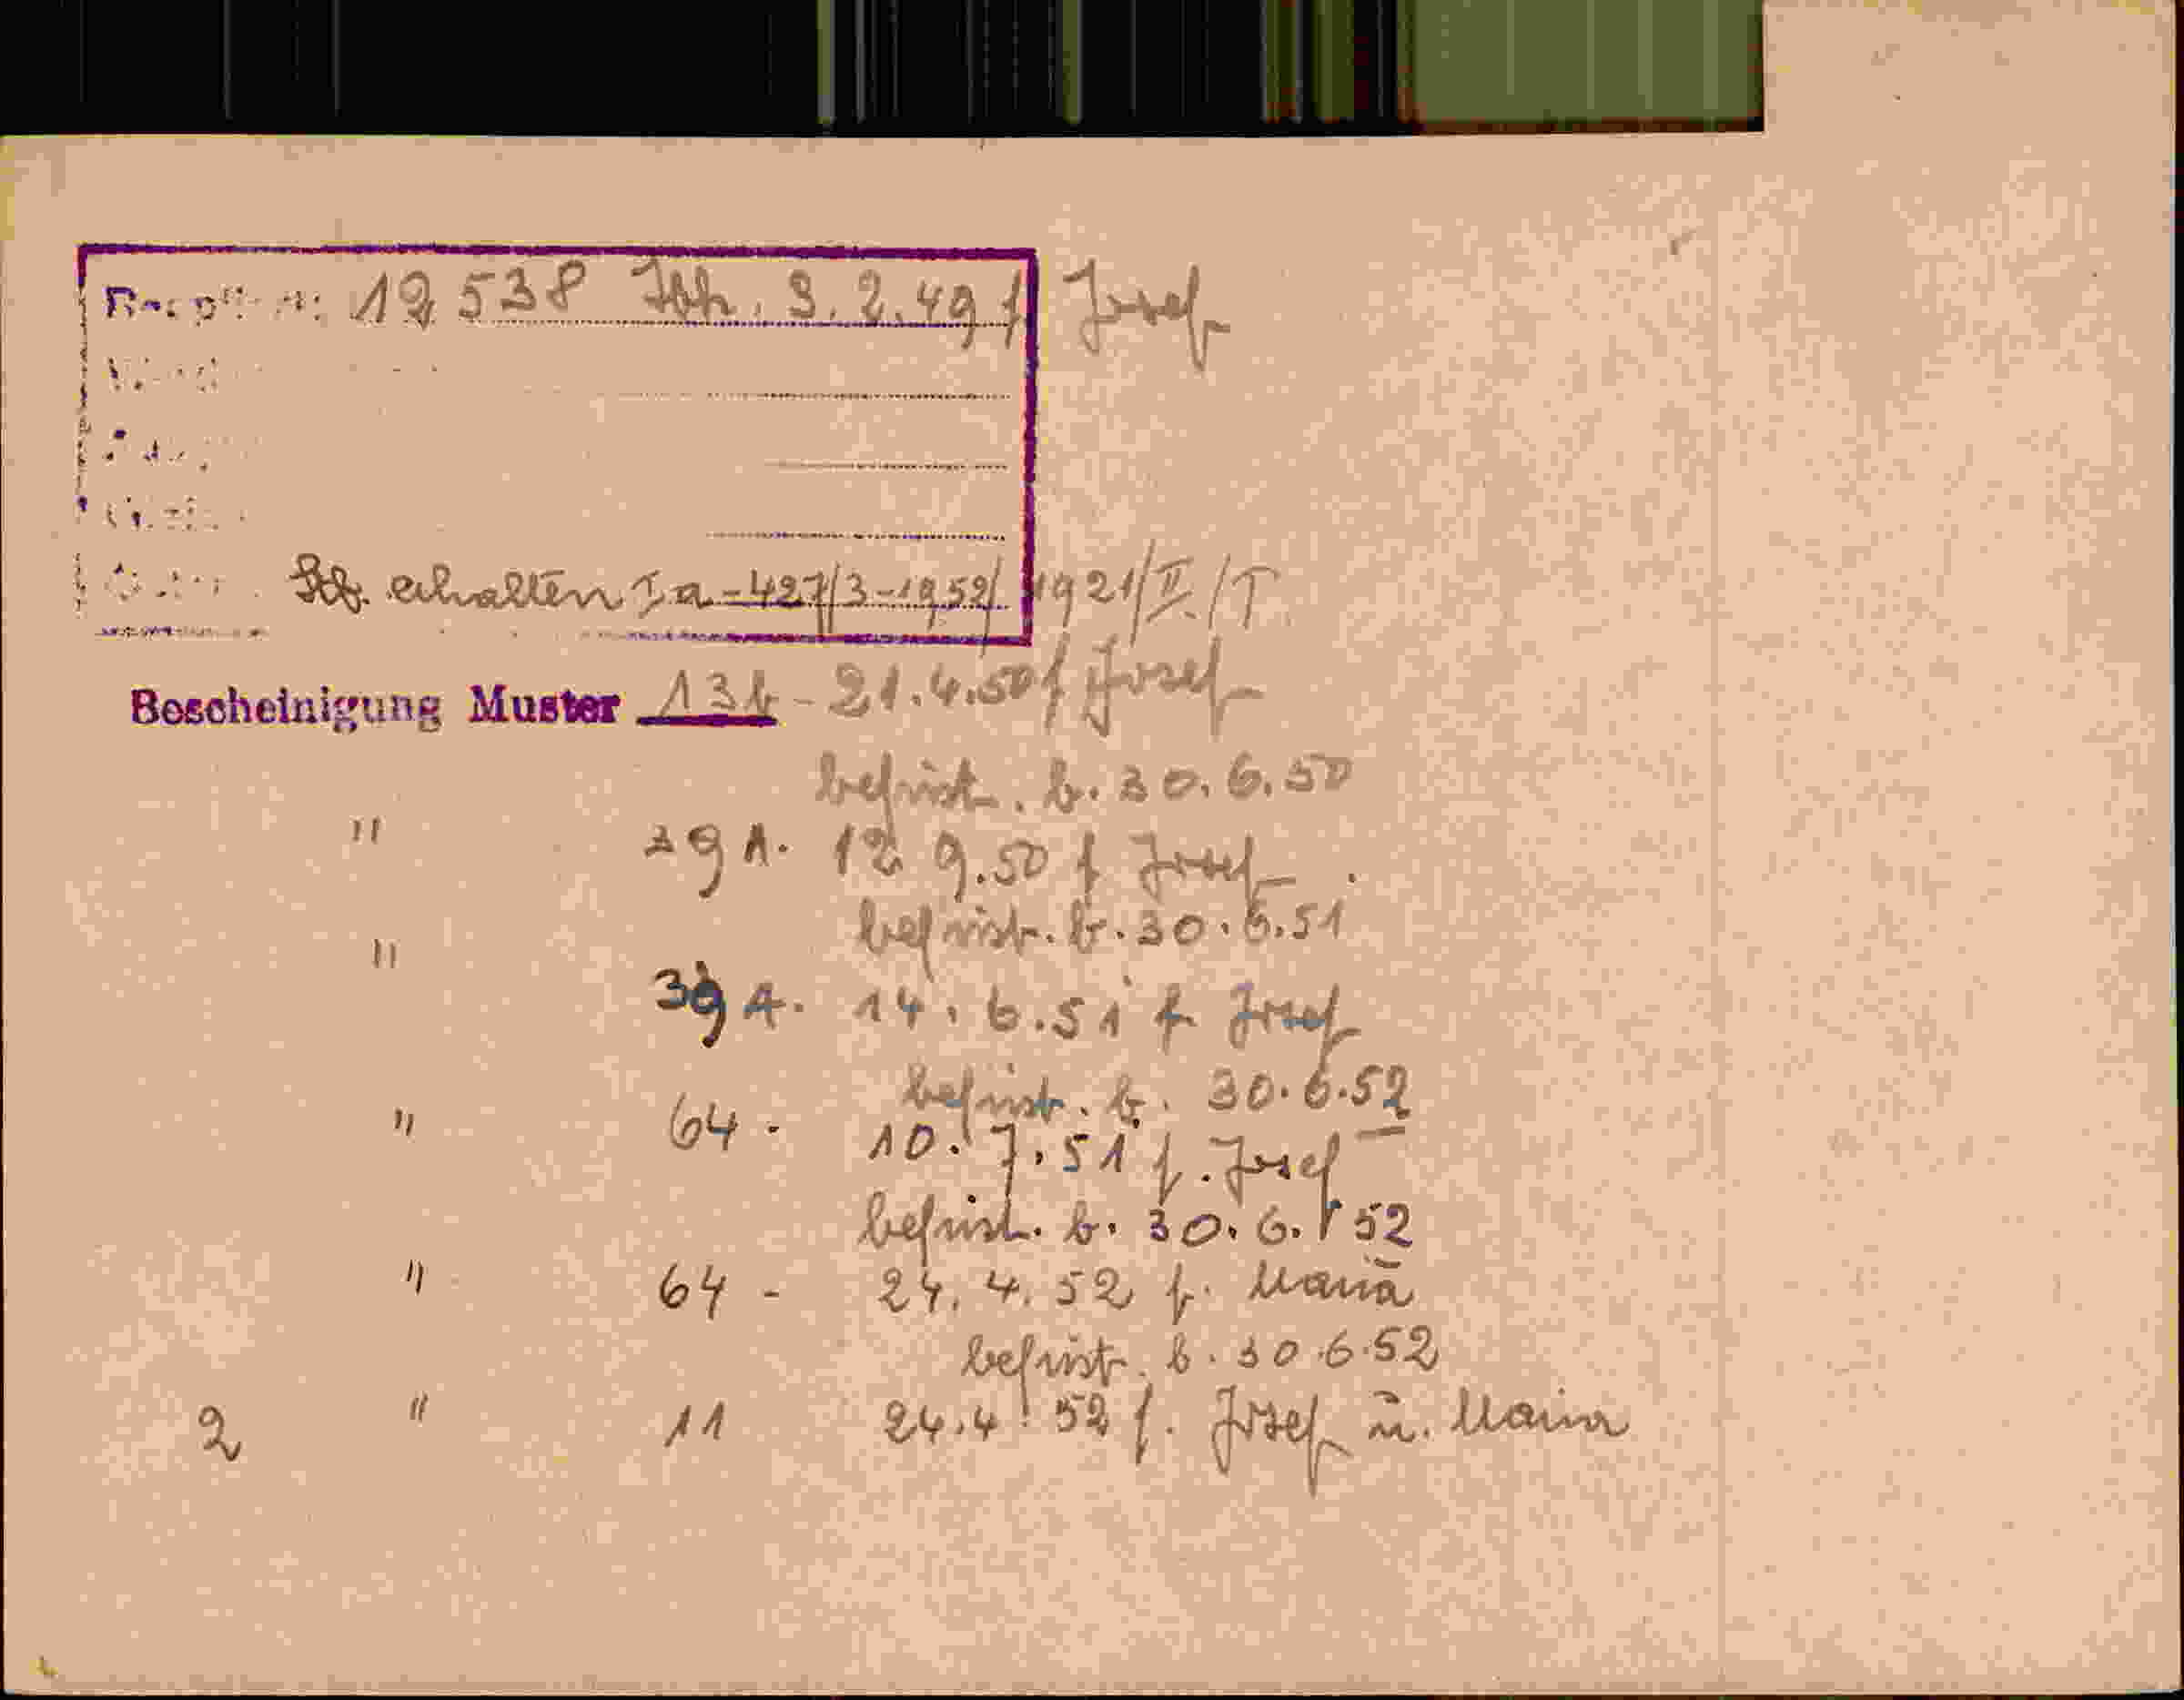 12 538 3.2.49 f Josef
erhalten I a - 427/3-1952/ 1921/II/T
Bescheinigung Muster 13b - 21.4.50 f Josef
befrist. b. 30.6.50
" 29 A. 12 9.50 f Josef
befrist. b. 30.6.51
" 39 A. 14.6.51 f. Josef
befrist. b. 30.6.52
" 64 - 10.7.51 f. Josef
befrist. b. 30.6.52
" 64 - 24.4.52 f. Maria
befrist. b. 30.6.52
2 " 11 24.4.52 f. Josef u. Maria